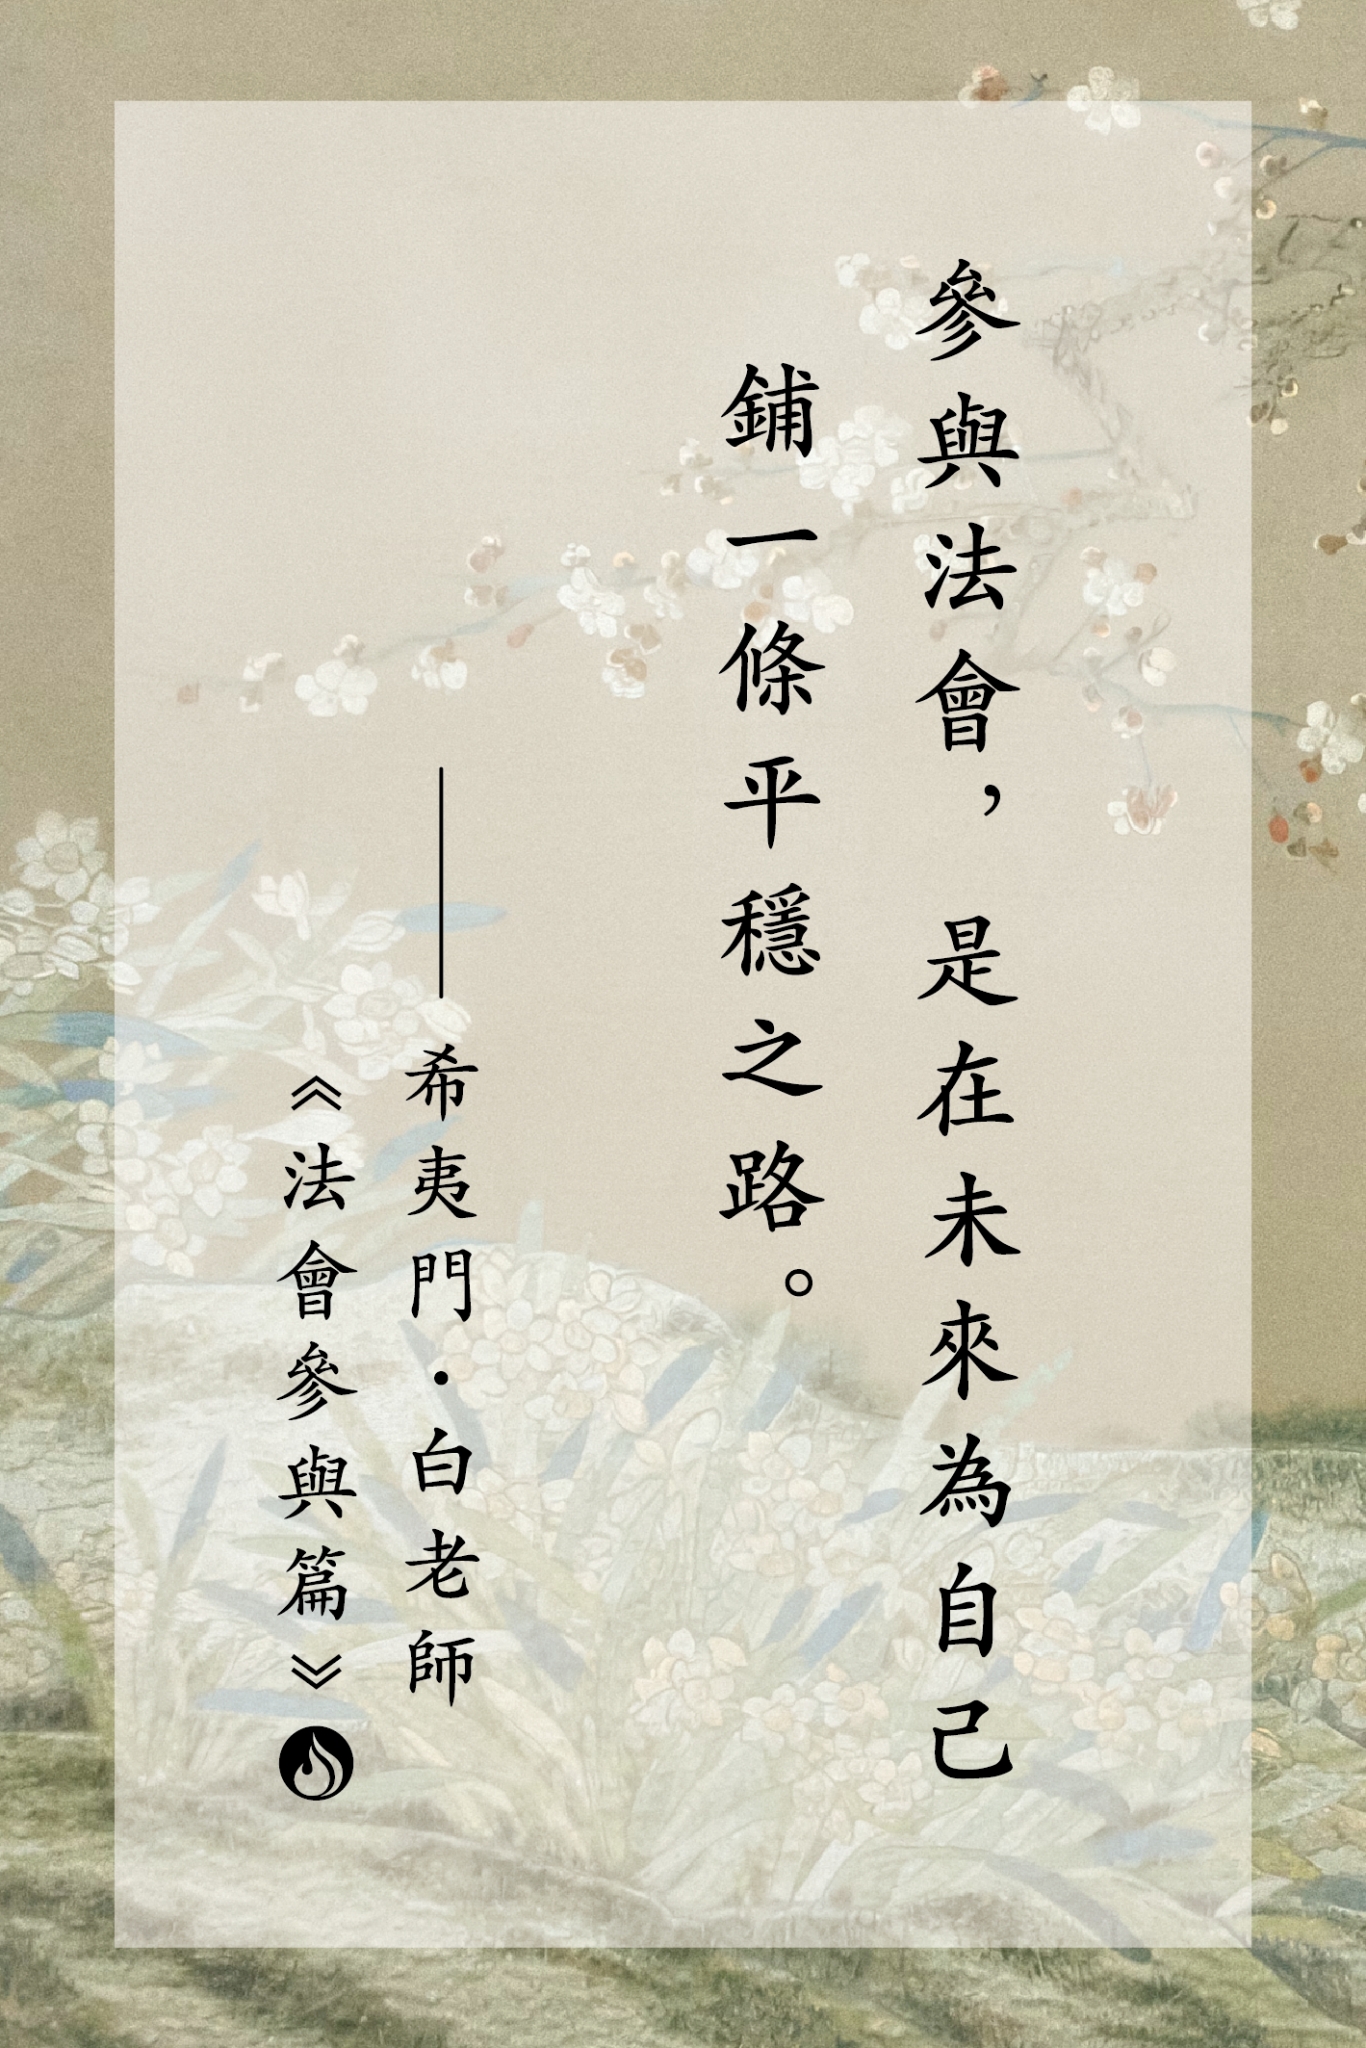 參與法會，是在未來為自己
鋪一條平穩之路。
——希夷門・白老師
《法會參與篇》